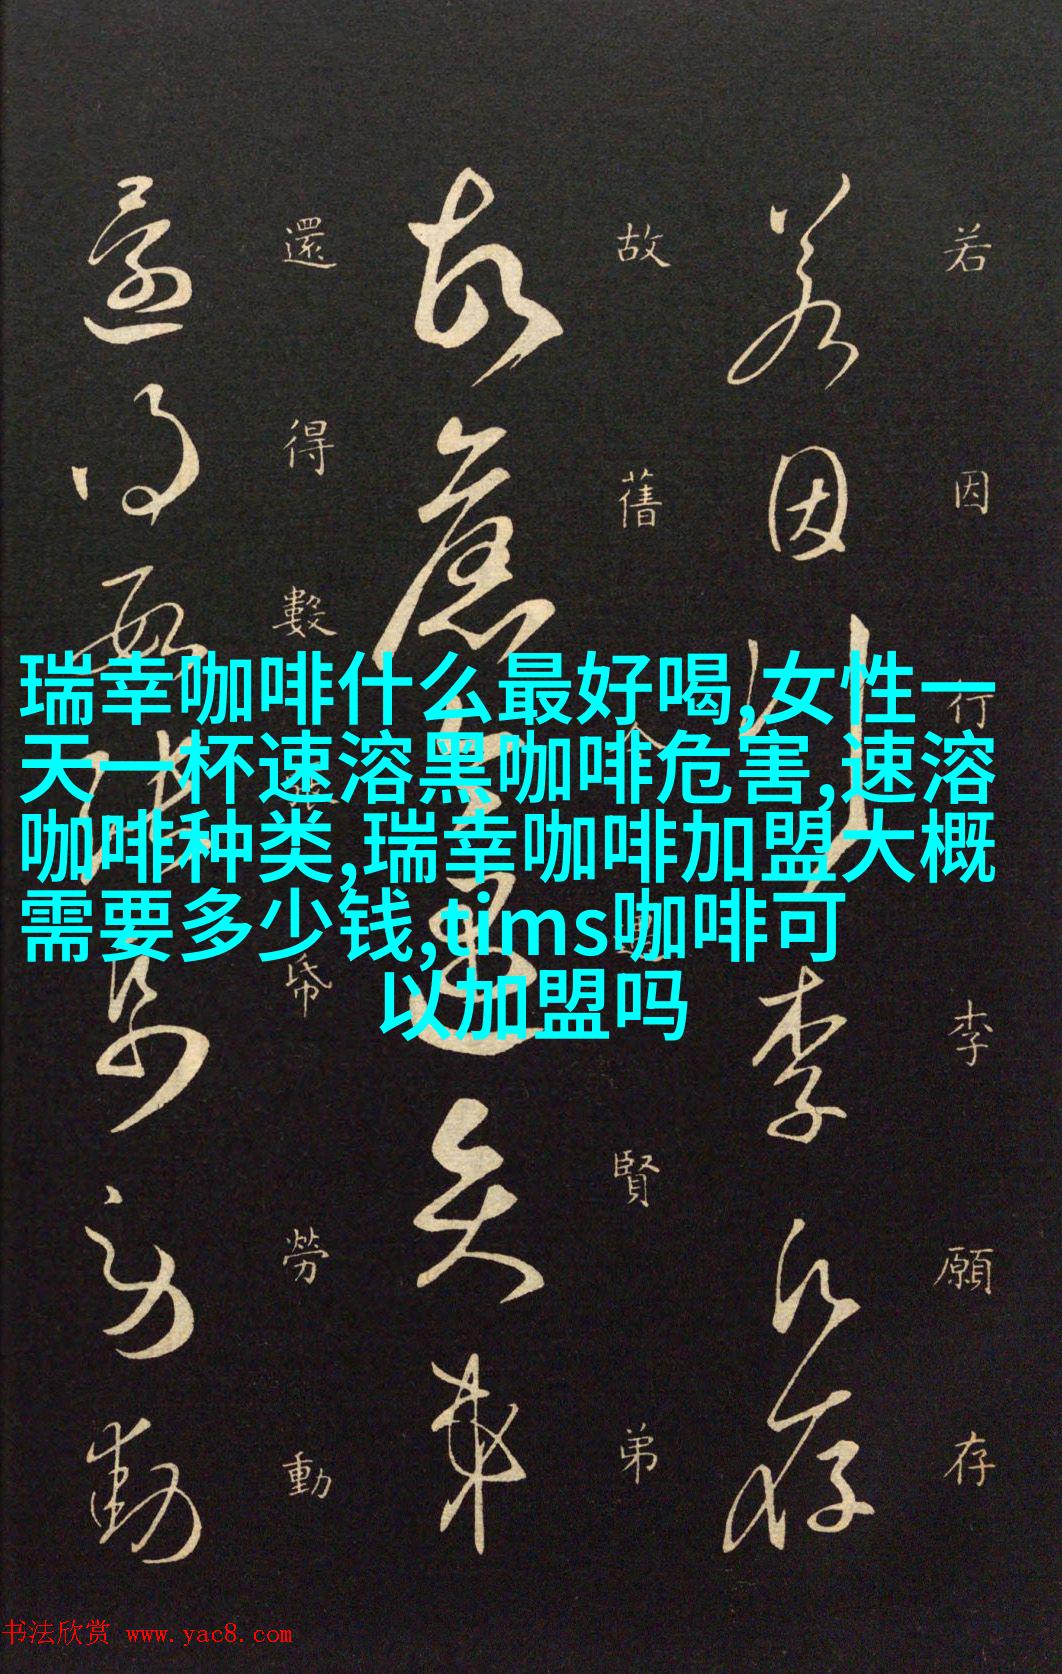 若因行李願存
故舊人遇賢弟
還得數張帋勞動
瑞幸咖啡什么最好喝,女性一
天一杯速溶黑咖啡危害,速溶
咖啡种类,瑞幸咖啡加盟大概
需要多少钱,tims咖啡可
以加盟吗
书法欣赏 www.yac8.com